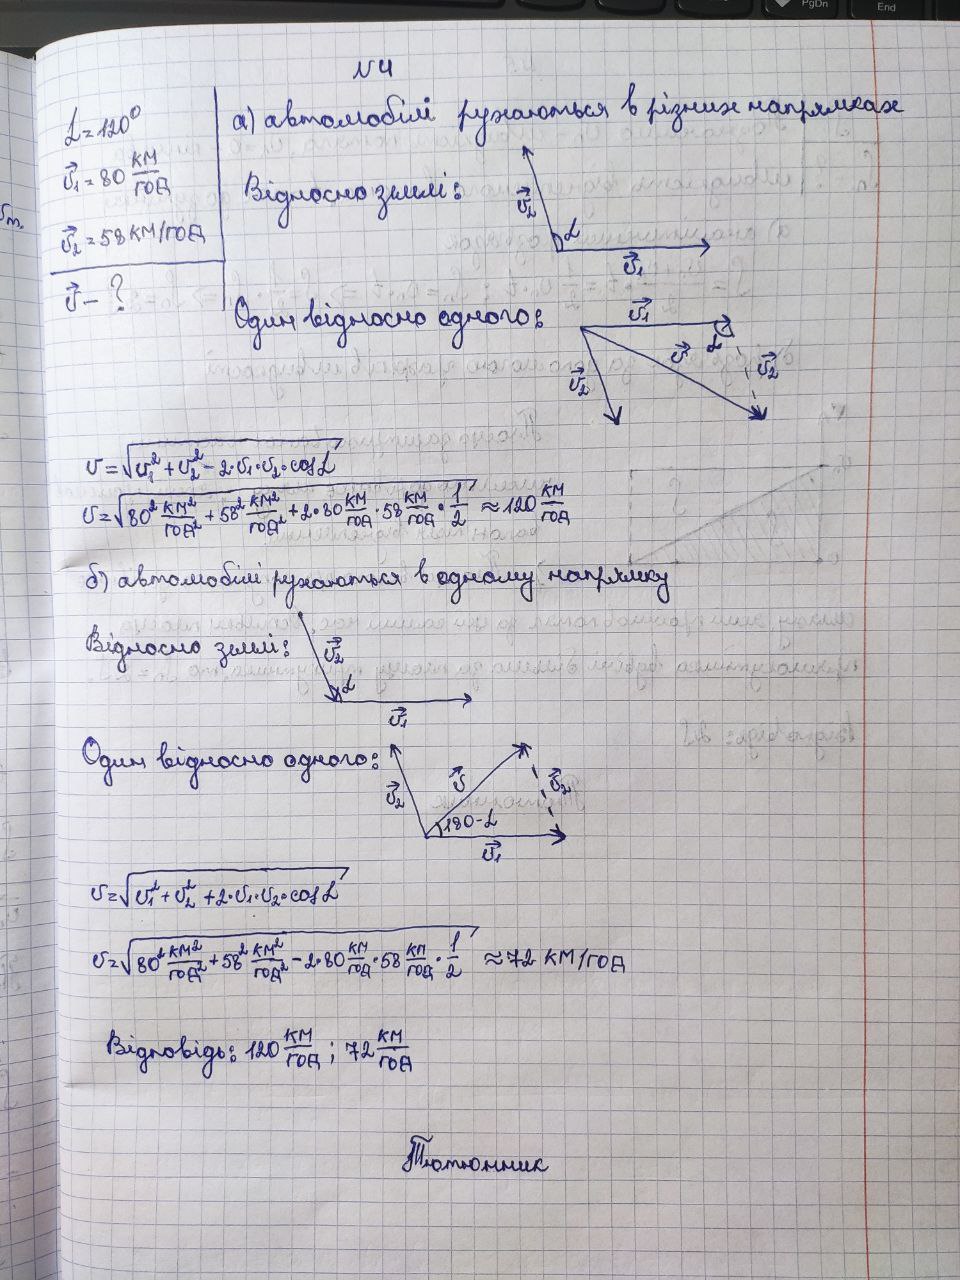 N4
α=120°
v⃗₁=80 км/год
v⃗₂=58 км/год
v⃗-?
а) автомобілі рухаються в різних напрямках
Відносно землі:
v⃗₂
α
v⃗₁
Один відносно одного:
v⃗₁
α
v⃗
v⃗₂
v⃗₂
v=√(v₁²+v₂²-2·v₁·v₂·cosα)
v=√(80² км²/год²+58² км²/год²+2·80 км/год·58 км/год·1/2) ≈120 км/год
б) автомобілі рухаються в одному напрямку
Відносно землі:
v⃗₂
α
v⃗₁
Один відносно одного:
v⃗₂
v⃗
v⃗₂
180-α
v⃗₁
v=√(v₁²+v₂²+2·v₁·v₂·cosα)
v=√(80² км²/год²+58² км²/год²-2·80 км/год·58 км/год·1/2) ≈72 км/год
Відповідь: 120 км/год; 72 км/год
Тютюнник
PgDn
End